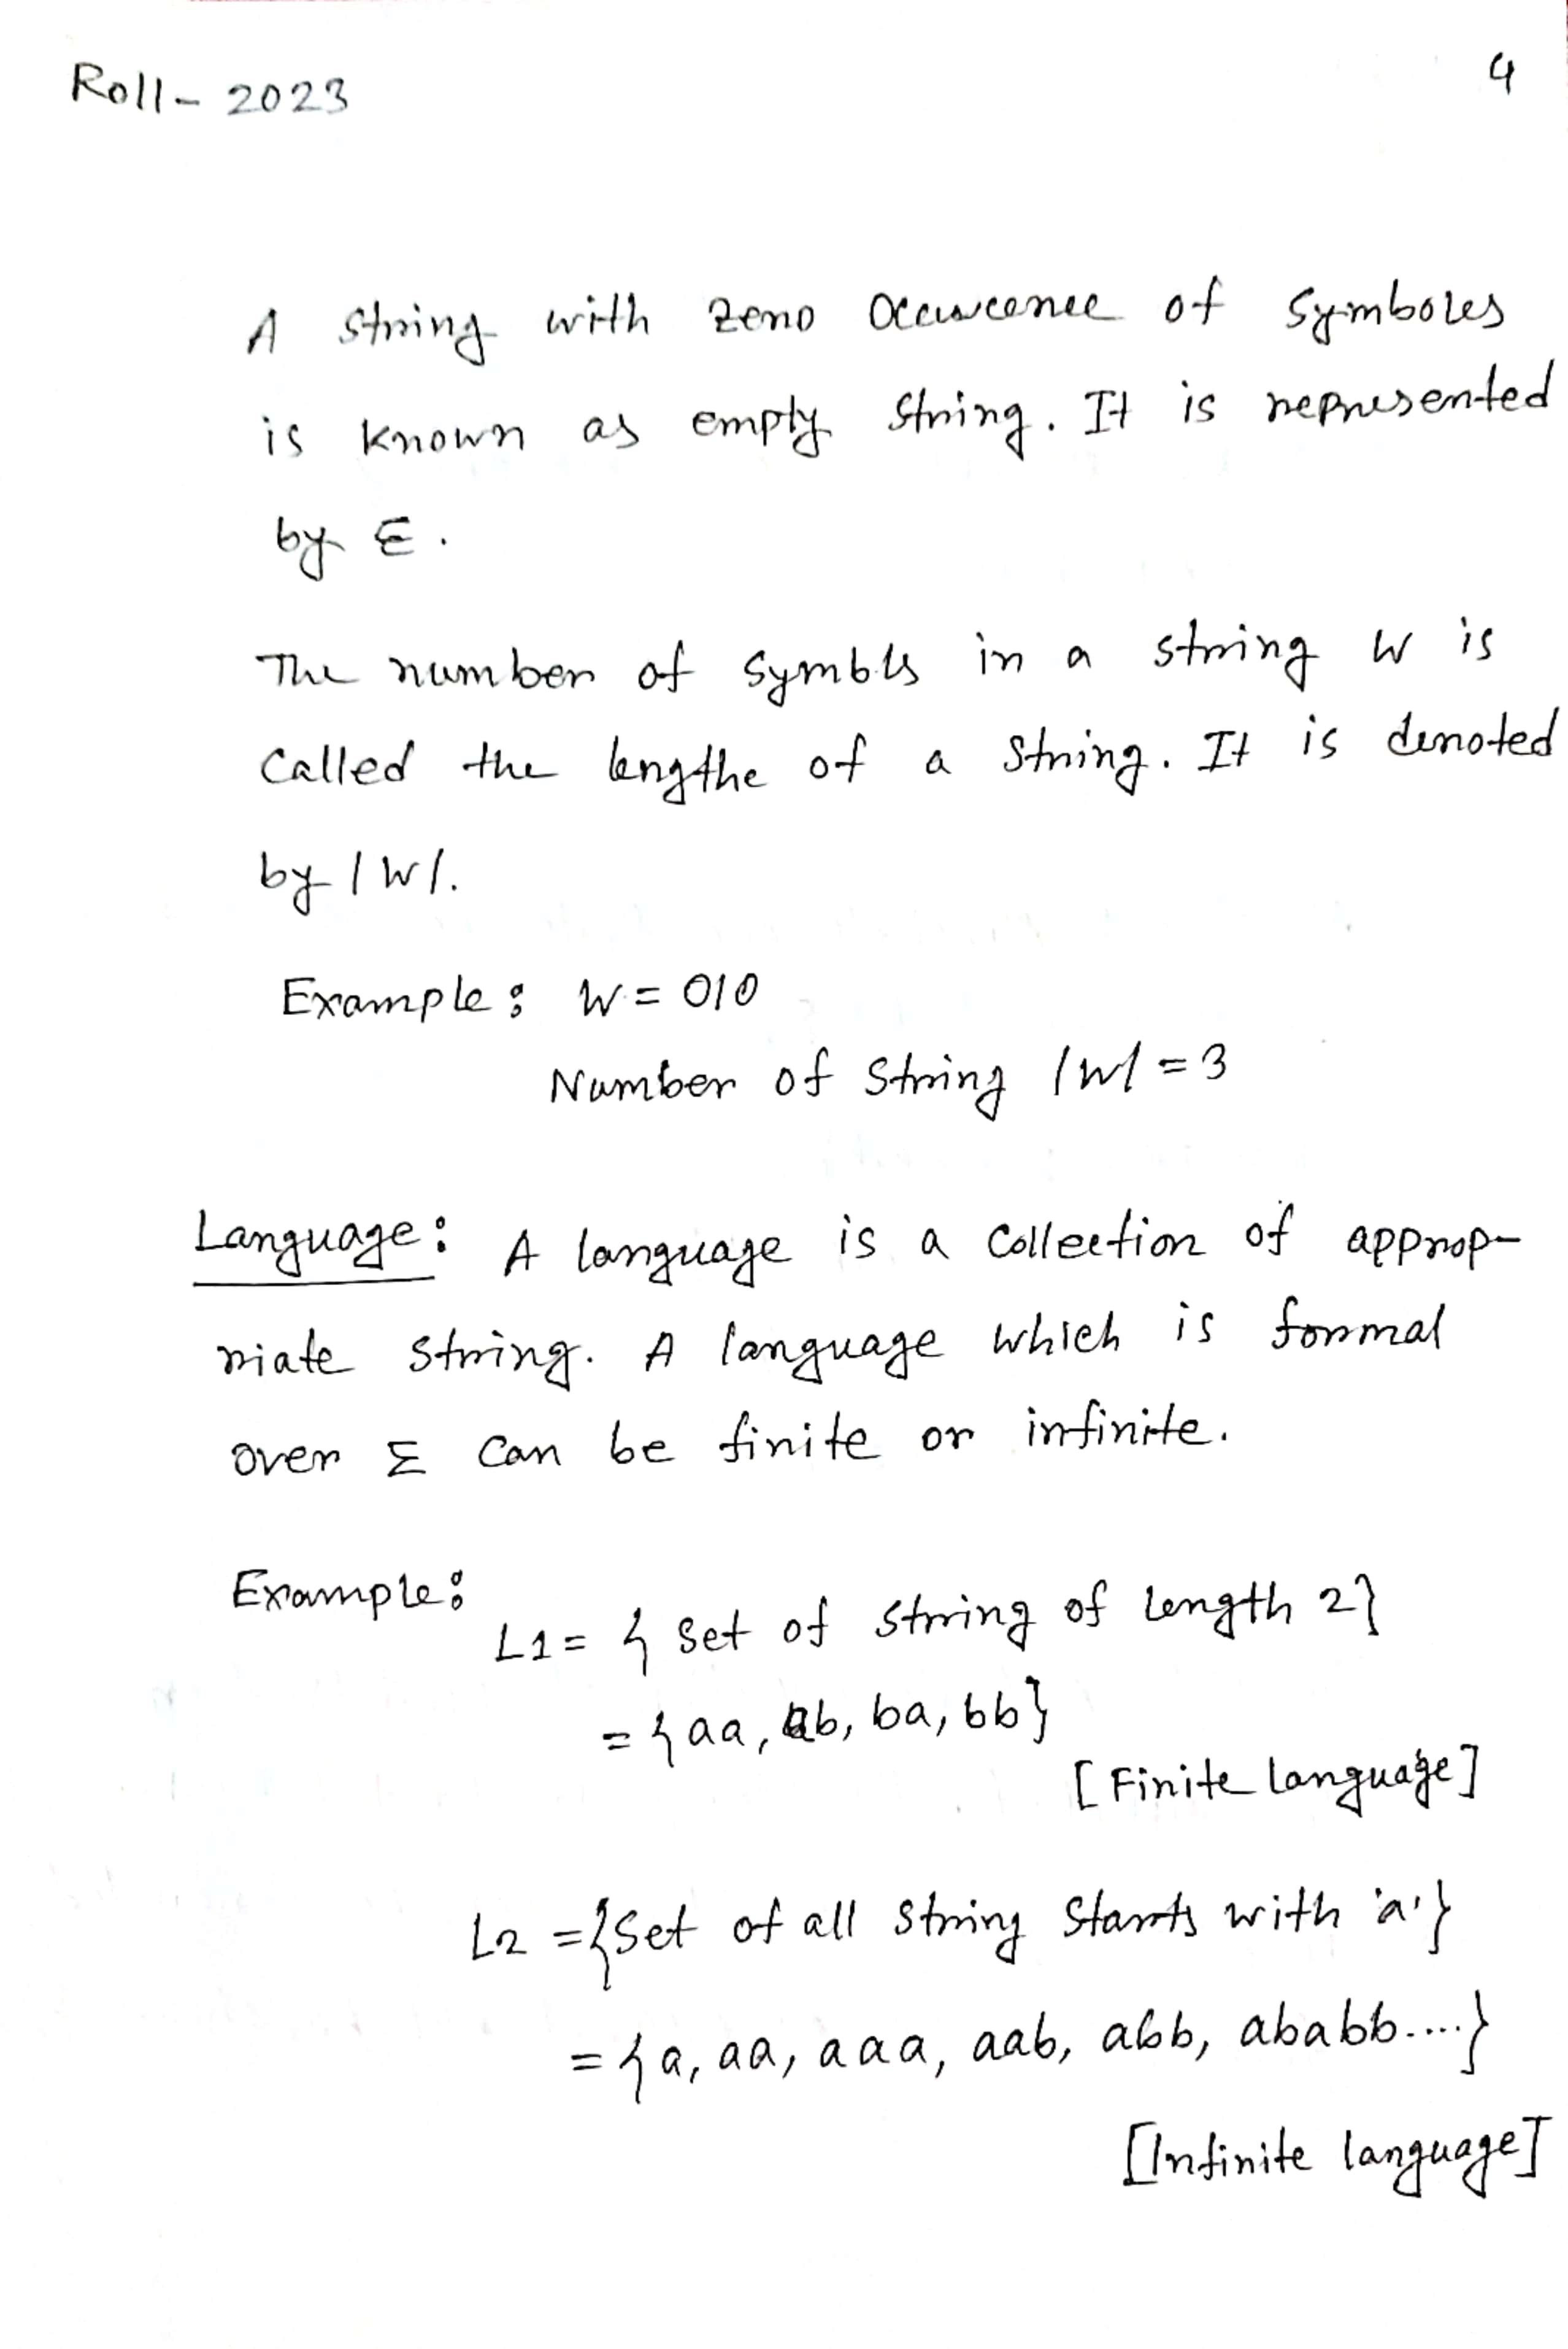 Roll- 2023
4
A string with zero Occurence of Symboles
is known as empty string. It is represented
by ε.
The number of symbls in a string W is
Called the lengthe of a string. It is denoted
by |W|.
Example: W = 010
Number of string |W| = 3
Language: A language is a collection of approp-
riate string. A language which is formal
over Σ can be finite or infinite.
Example:
L1 = { set of string of length 2}
= {aa, ab, ba, bb}
[Finite language]
L2 = {Set of all string starts with 'a'}
= {a, aa, aaa, aab, abb, ababb....}
[Infinite language]